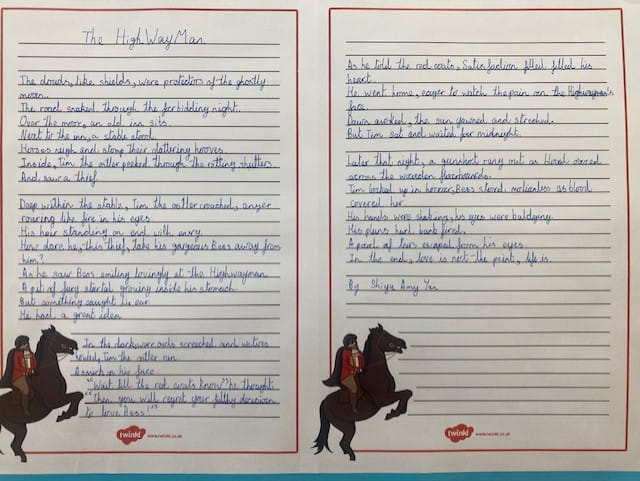 The HighWayMan
The clouds, like shields, were protectors of the ghostly
moon.
The road snaked through the forbidding night.
Over the moor, an old inn sits
Next to the inn, a stable stood.
Horses neigh and stomp their clattering hooves.
Inside, Tim the ostler peeked through the rotting shutters.
And saw a thief.
Deep within the stable, Tim the ostler crouched, anger
roaring like fire in his eyes.
His hair standing on end with envy.
How dare he, this thief, take his gorgeous Bess away from
him?
As he saw Bess smiling lovingly at the Highwayman
A pit of fury started growing inside his stomach
But something caught his ear
He had a great idea
In the darkness owls screeched and wolves
howled, Tim the ostler ran.
A smirk on his face
"Wait till the red coats know" he thought.
"Then you will regret your filthy decision
to love Bess!"
twinkl www.twinkl.co.uk
As he told the red coats, Satisfaction filled filled his
heart.
He went home, eager to watch the pain on the Highwayman's
face.
Dawn awoked, the sun yawned and streched.
But Tim sat and waited for midnight.
Later that night, a gunshot rang out as blood
across the wooden floorboards.
Tim looked up in horror, Bess stood motionless as blood
covered her.
His hands were shaking, his eyes were buldging.
His plans had back fired.
A pearl of tears escaped from his eyes.
In the end, love is not the point, life is.
By Shiyu Amy Yan
twinkl www.twinkl.co.uk